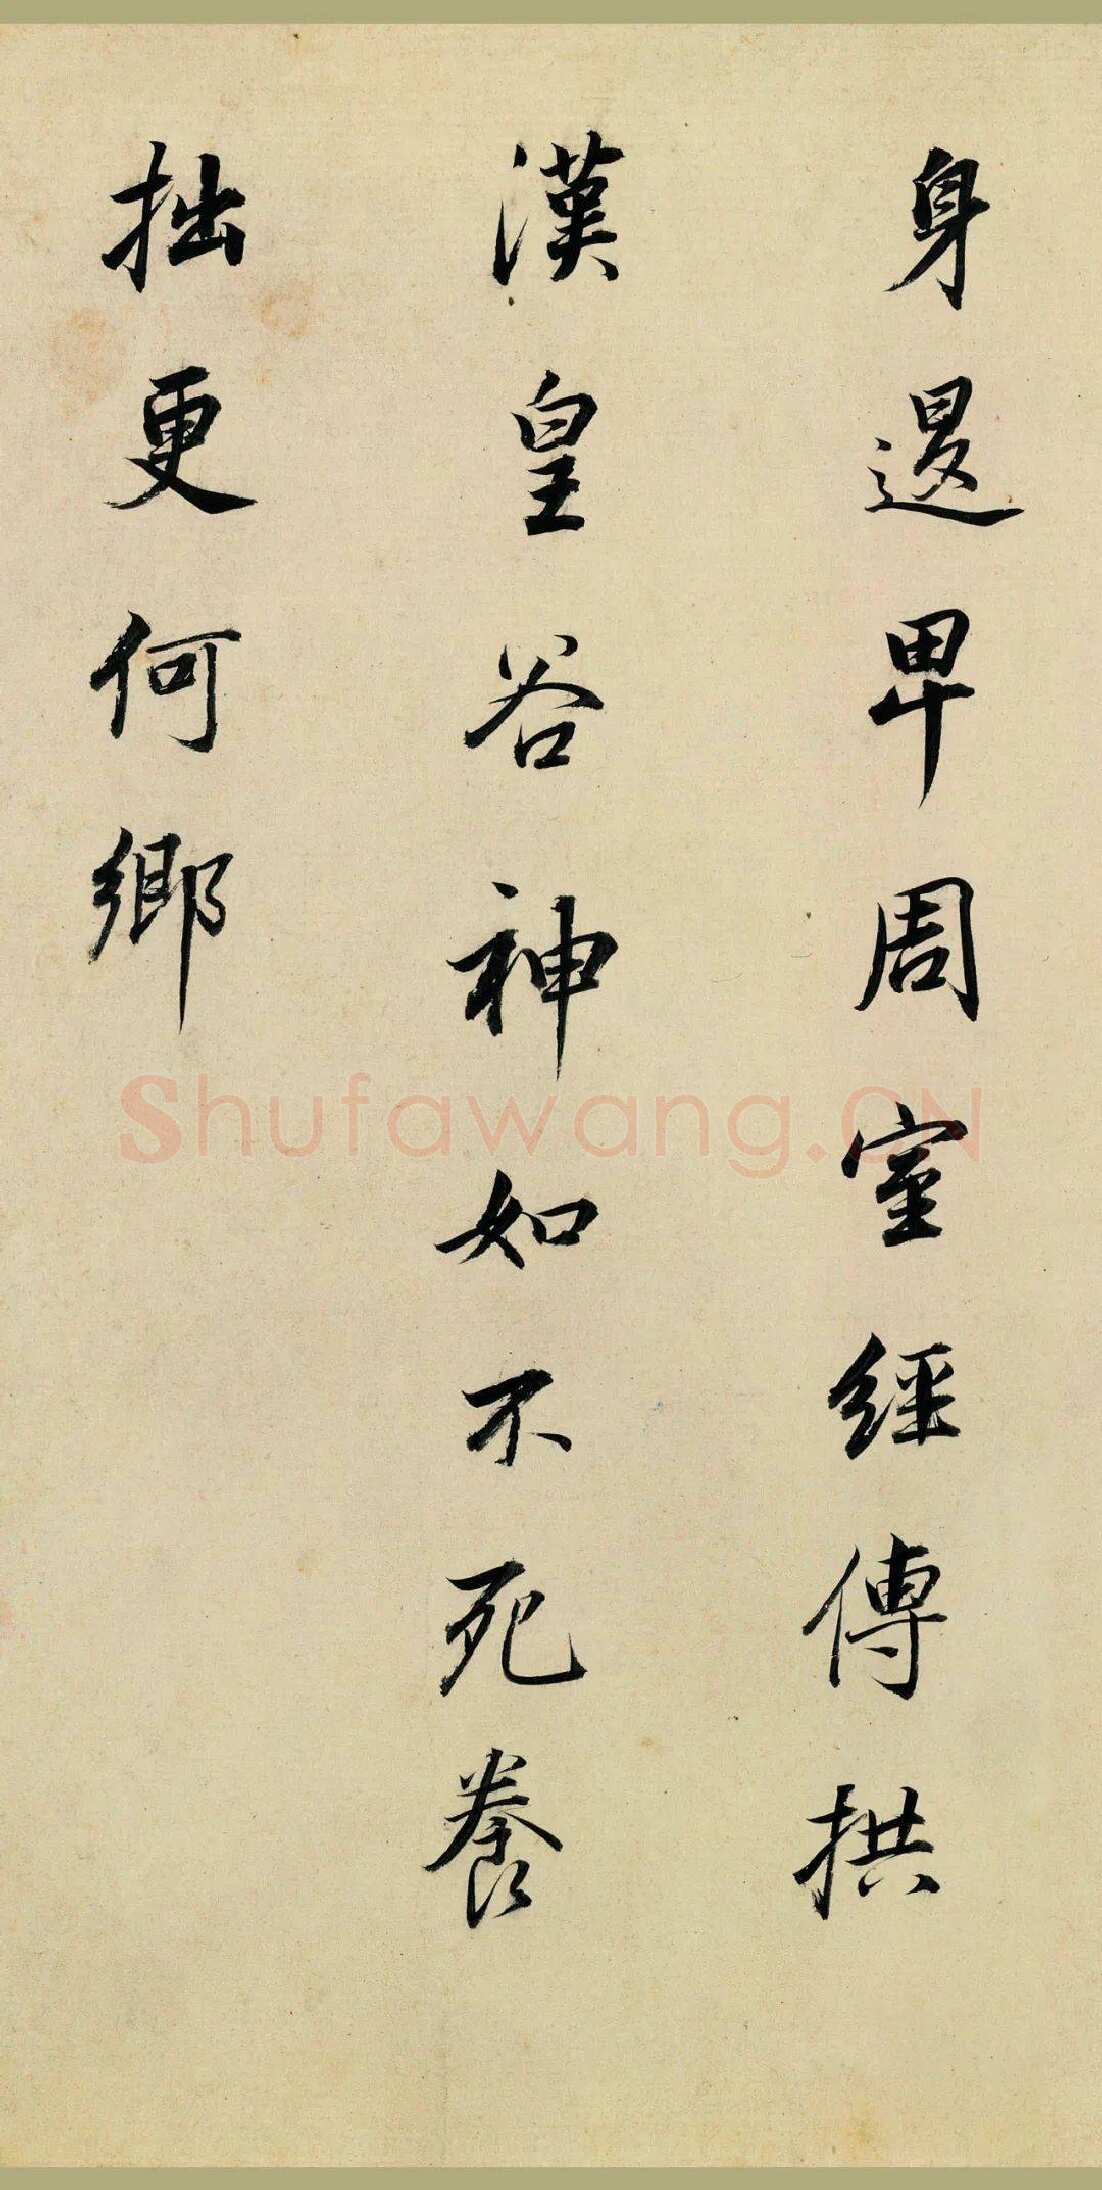 身退卑周室經傳拱
漢皇谷神如不死養
拙更何鄉
Shufawang.CN